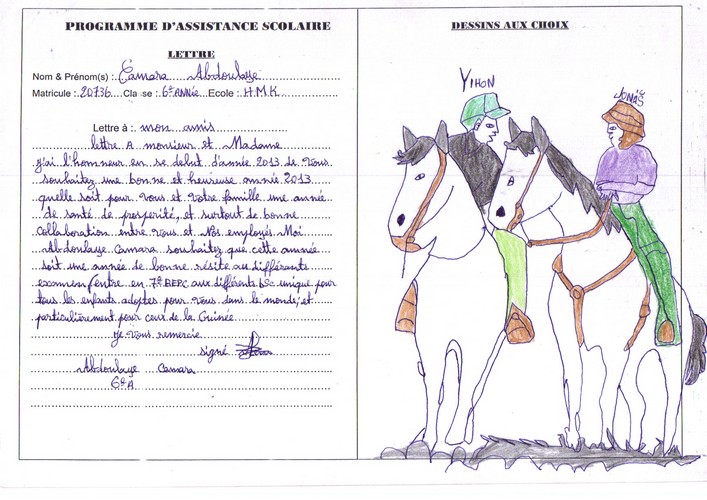 PROGRAMME D'ASSISTANCE SCOLAIRE
LETTRE
Nom & Prénom(s) : Camara Abdoulaye
Matricule : 20736 Cla se : 6e ANNÉE Ecole : H.M.K
Lettre à : mon amis
lettre A monsieur et Madame
j'ai l'honneur en se debut d'année 2013 de vous
souhaitez une bonne et heureuse année 2013
quelle soit pour vous et votre famille une année
de santé de prosperité, et surtout de bonne
collaboration entre vous et Nos employés Moi
Abdoulaye Camara souhaitez que cette année
soit une année de bonne résite au différents
examen l'entre en 7e BEPC aux différents bac unique pour
tous les enfants adoptes pour vous dans le monde, et
particulièrement pour ceux de la Guinée
Je vous remercie
signé
Abdoulaye Camara
6e A
DESSINS AUX CHOIX
YIHON
JONAS